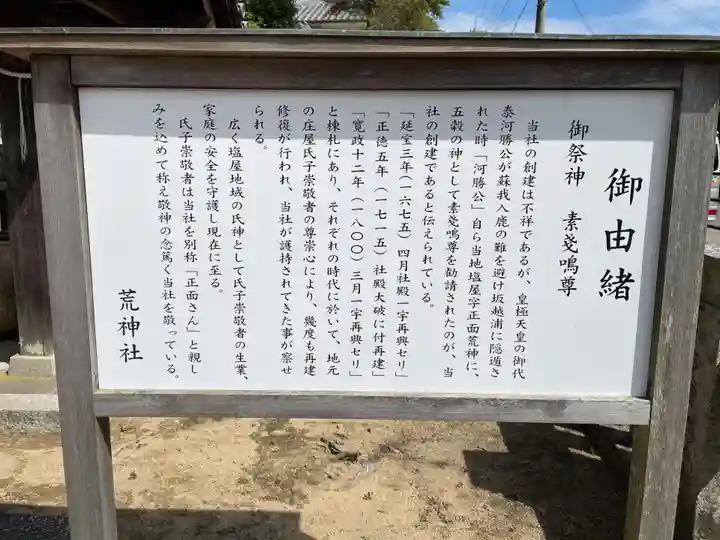 御由緒
御祭神　素戔嗚尊
当社の創建は不祥であるが、皇極天皇の御代
秦河勝公が蘇我入鹿の難を避け坂越浦に隠遁さ
れた時「河勝公」自ら当地塩屋字正面荒神に、
五穀の神として素戔鳴尊を勧請されたのが、当
社の創建であると伝えられている。
「延宝三年（一六七五）四月社殿一宇再興セリ」
「正徳五年（一七一五）社殿大破に付再建」
「寛政十二年（一八〇〇）三月一宇再興セリ」
と棟札にあり、それぞれの時代に於いて、地元
の庄屋氏子崇敬者の尊崇心により、幾度も再建
修復が行われ、当社が護持されてきた事が察せ
られる。
広く塩屋地域の氏神として氏子崇敬者の生業、
家庭の安全を守護し現在に至る。
氏子崇敬者は当社を別称「正面さん」と親し
みを込めて称え敬神の念篤く当社を敬っている。
荒神社